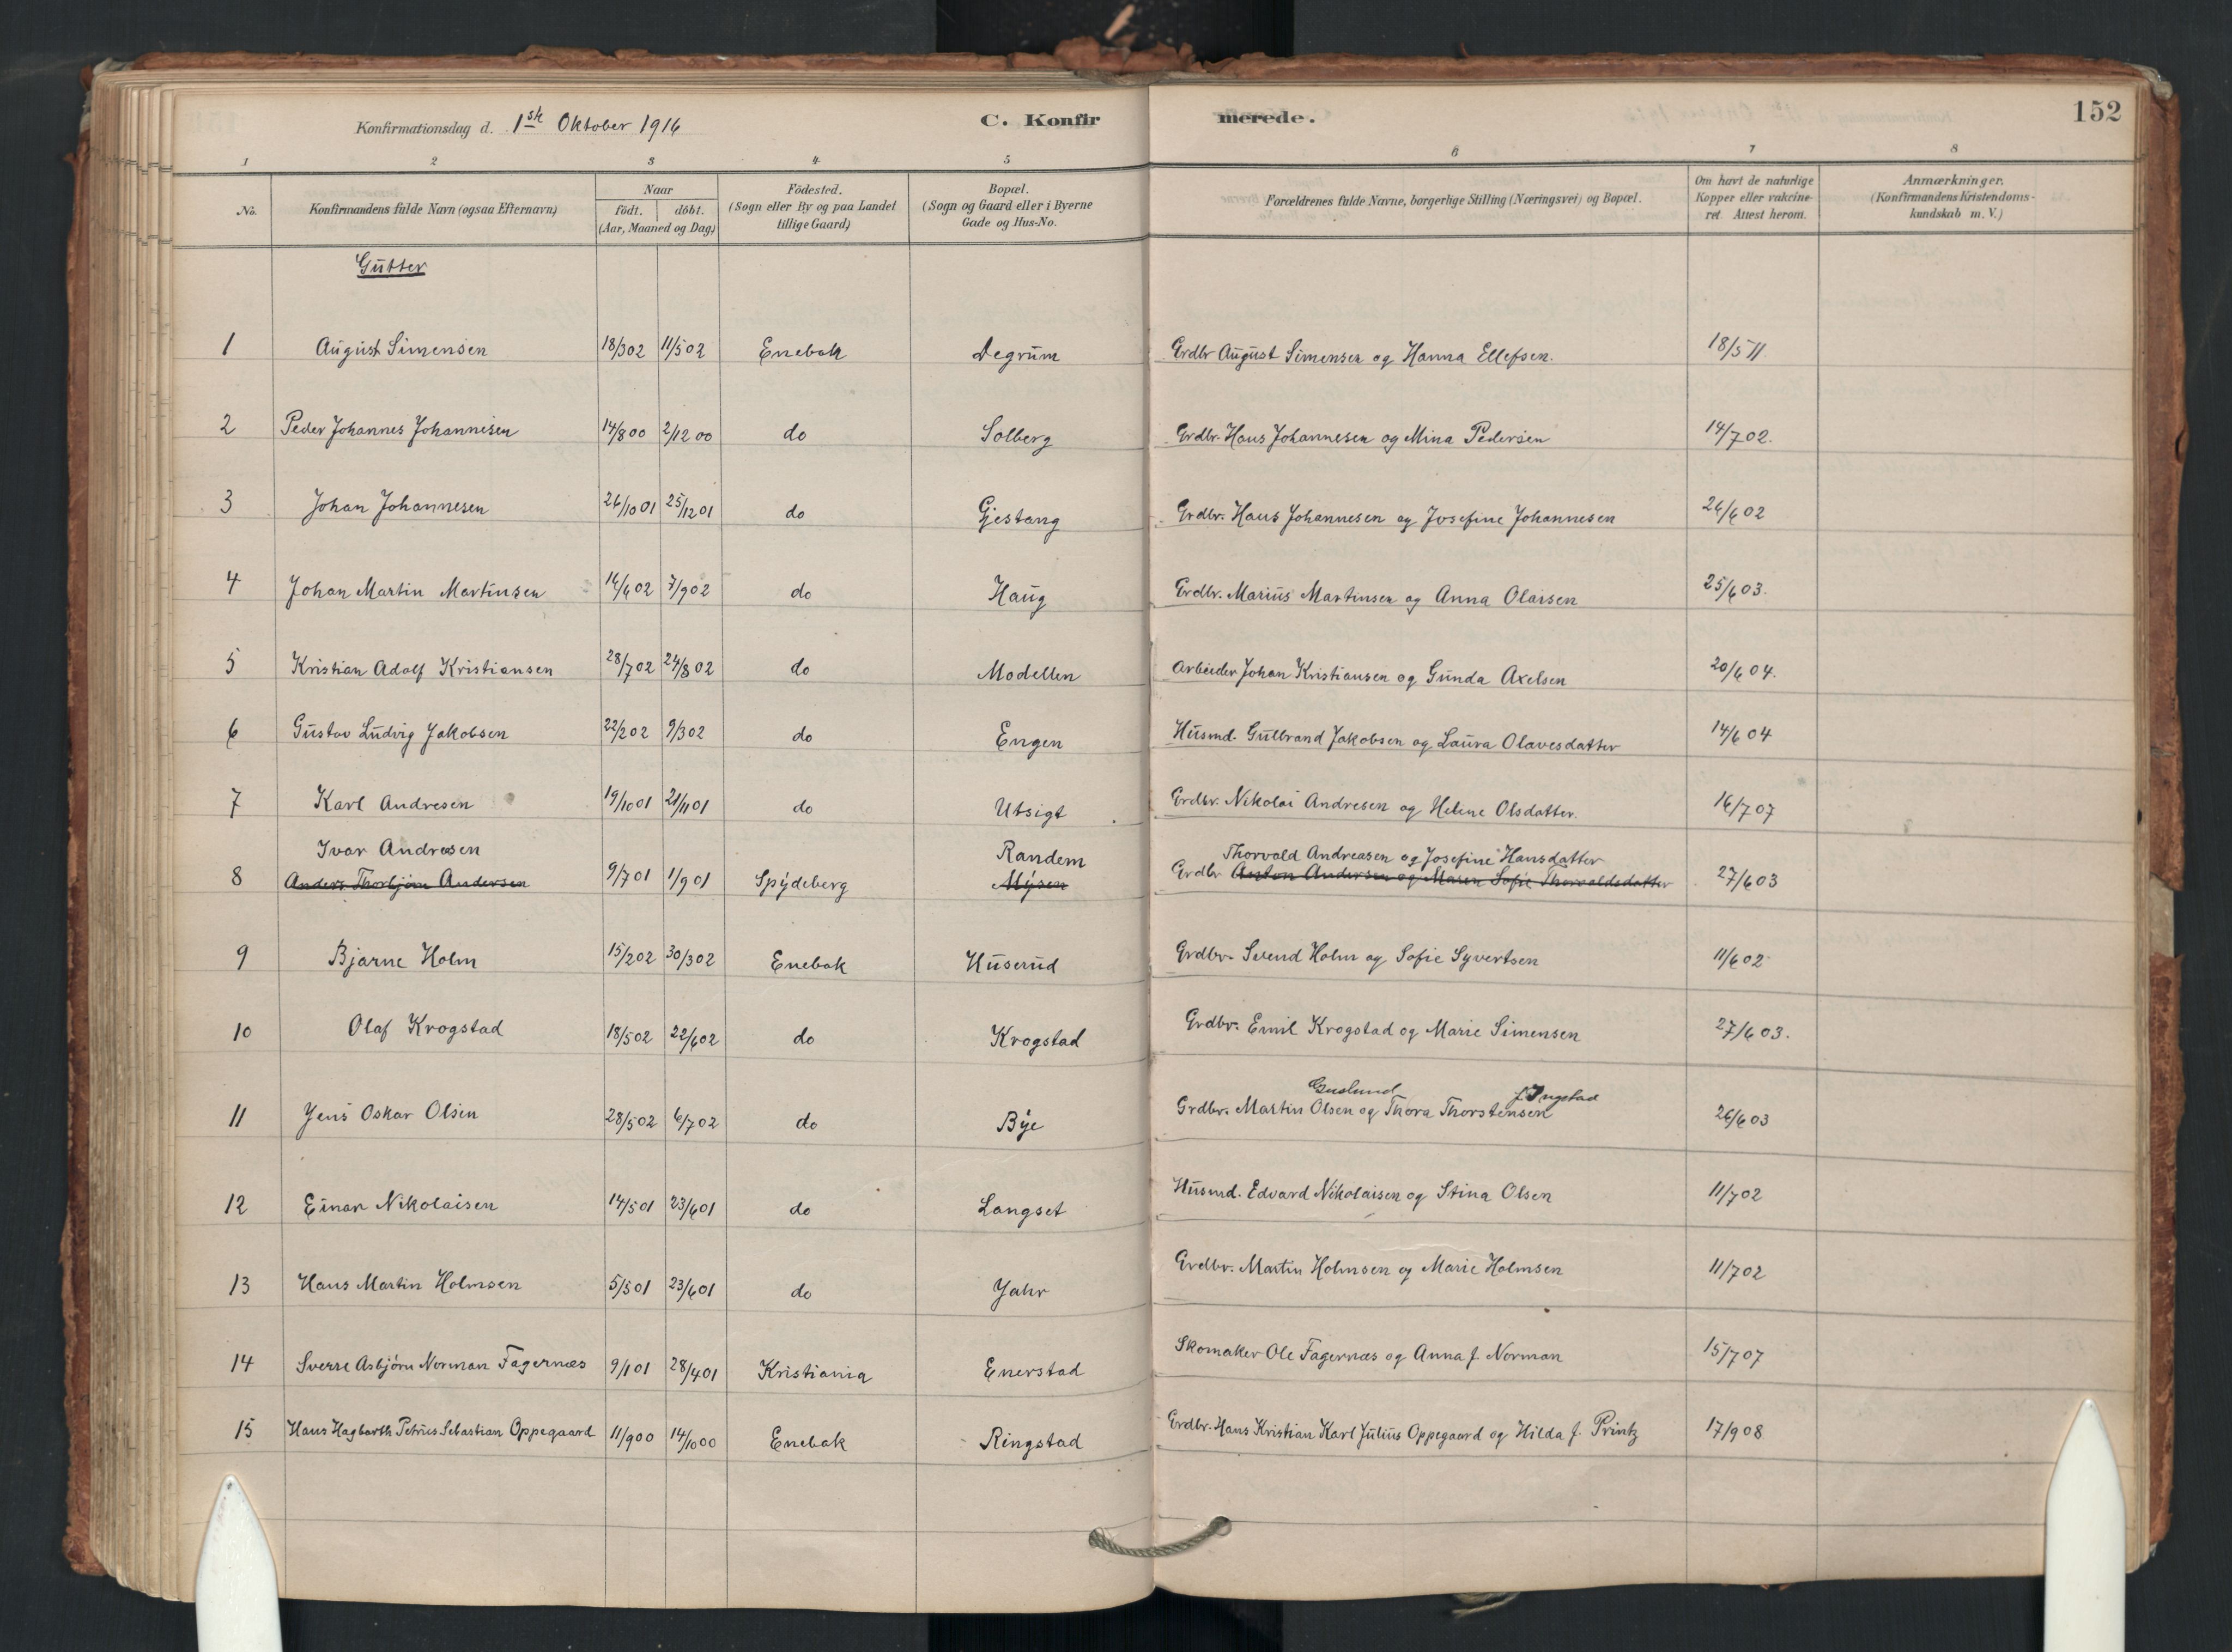 Konfirmationsdag d. 1ste Oktober 1916 C. Konfirmerede. 152
1 2 3 4 5 6 7 8
No. Konfirmandens fulde Navn (ogsaa Efternavn) Naar födt. döbt. (Aar, Maaned og Dag) Födested. (Sogn eller By og paa Landet tillige Gaard) Bopæl. (Sogn og Gaard eller i Byerne Gade og Hus-No. Forældrenes fulde Navne, borgerlige Stilling (Næringsvei) og Bopæl. Om havt de naturlige Kopper eller vakcineret. Attest herom. Anmærkninger. (Konfirmandens Kristendomskundskab m. V.)
Gutter
1 August Simensen 18/3 02 11/5 02 Enebak Degrum Grdbr August Simensen og Hanna Ellefsen. 18/5 11.
2 Peder Johannes Johannesen 14/8 00 2/12 00 do Solberg Grdbr. Hans Johannesen og Mina Pedersen 14/7 02.
3 Johan Johannesen 26/10 01 25/12 01 do Gjestang Grdbr. Hans Johannesen og Josefine Johannesen 26/6 02
4 Johan Martin Martinsen 16/6 02 7/9 02 do Haug Grdbr. Marius Martinsen og Anna Olaisen 25/6 03.
5 Kristian Adolf Kristiansen 28/7 02 24/8 02 do Modellen Arbeider Johan Kristiansen og Gunda Axelsen 20/6 04.
6 Gustav Ludvig Jakobsen 22/2 02 9/3 02 do Engen Husmd. Gulbrand Jakobsen og Laura Olavesdatter 14/6 04
7 Karl Andresen 19/10 01 21/11 01 do Utsigt Grdbr. Nikolai Andresen og Helene Olsdatter. 16/7 07
Ivar Andresen Randem Thorvald Andreasen og Josefine Hansdatter
8 Anders Thorbjørn Andersen 9/7 01 1/9 01 Spydeberg Mysen Grdbr Anton Andersen og Maren Sofie Thorvaldsdatter 27/6 03
9 Bjarne Holm 15/2 02 30/3 02 Enebak Huserud Grdbr. Svend Holm og Sofie Syvertsen 11/6 02
10 Olaf Krogstad 18/5 02 22/6 02 do Krogstad Grdbr. Emil Krogstad og Marie Simensen 27/6 03.
Guslund f. Ingstad
11 Jens Oskar Olsen 28/5 02 6/7 02 do Bye Grdbr. Martin Olsen og Thora Thorstensen 26/6 03
12 Einar Nikolaisen 14/5 01 23/6 01 do Langset Husmd. Edvard Nikolaisen og Stina Olsen 11/7 02
13 Hans Martin Holmsen 5/5 01 23/6 01 do Jahr Grdbr. Martin Holmsen og Marie Holmsen 11/7 02
14 Sverre Asbjørn Norman Fagernæs 9/1 01 28/4 01 Kristiania Enerstad Skomaker Ole Fagernæs og Anna f. Norman 15/7 07
15 Hans Hagbarth Petrus Sebastian Oppegaard 11/9 00 14/10 00 Enebak Ringstad Grdbr. Hans Kristian Karl Julius Oppegaard og Hilda f. Printz 17/9 08